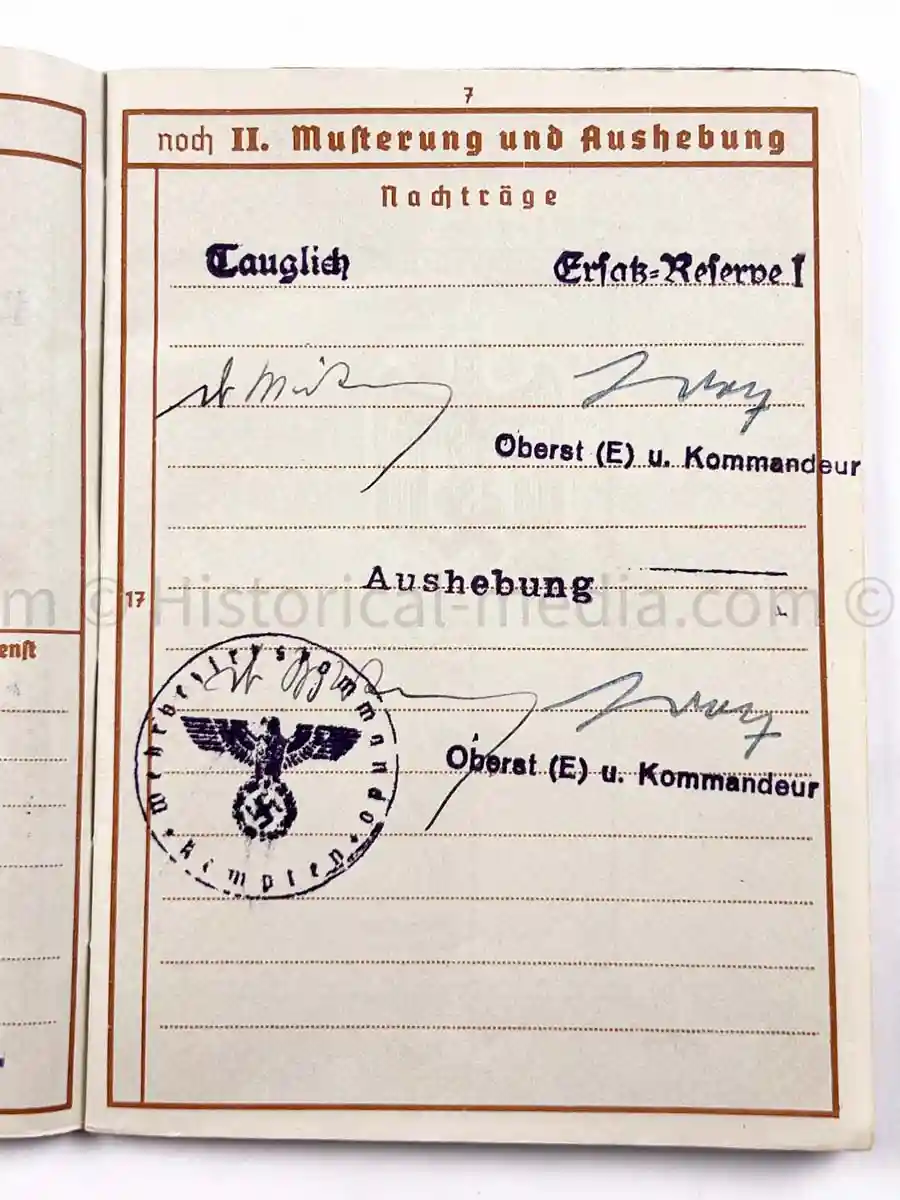 7
noch II. Musterung und Aushebung
Nachträge
Tauglich Ersatz=Reserve I
Oberst (E) u. Kommandeur
Aushebung
17
m © Historical-media.com ©
enst
Wehrbezirkskommando
Kempten
Oberst (E) u. Kommandeur